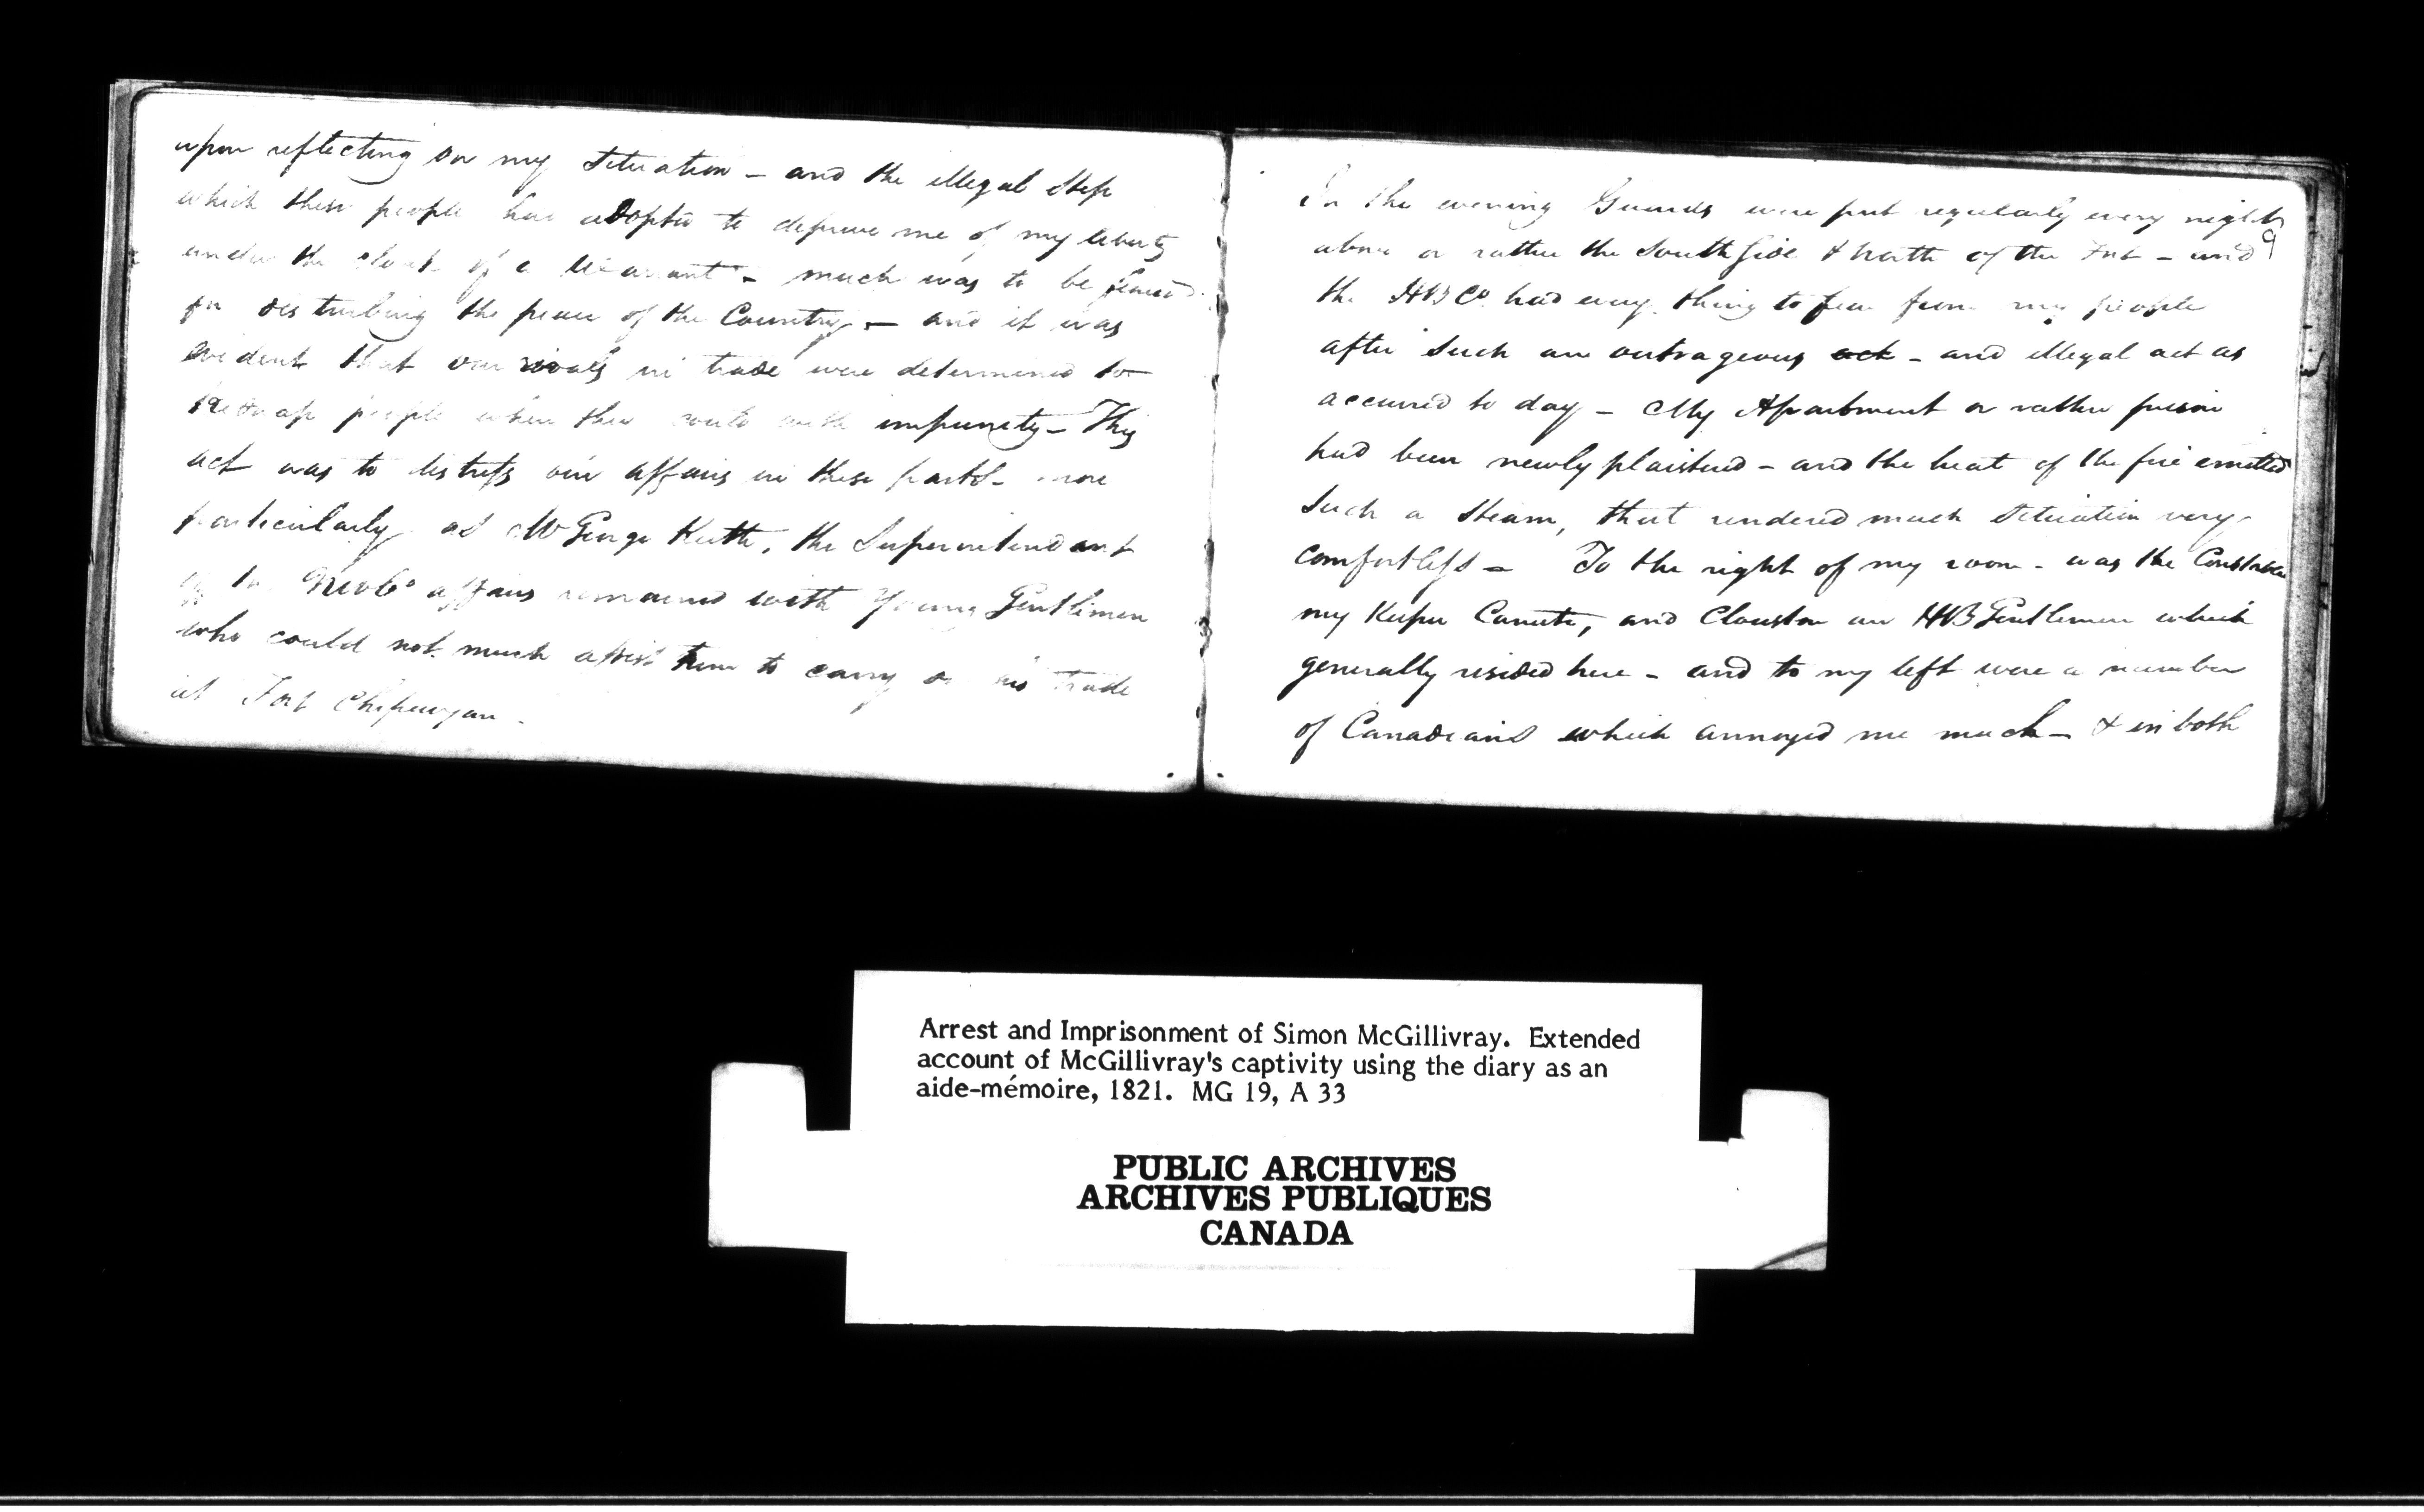 upon reflecting on my Situation – and the illegal Step
which these people have adopted to deprive me of my liberty
under the cloak of a Warrant – much was to be feared
for disturbing the peace of the Country – and it was
evident that our rivals in trade were determined to
Kidnap people when they could with impunity – This
act was to distress our affairs in these parts – more
particularly as Mr George Keith, the Superintendant
of the NWCo affairs remained with Young Gentlemen
who could not much assist him to carry on his trade
at Fort Chipewyan –
In the evening Guards were put regularly every night
9
above or rather the South Side & North of the Fort – and
the HB Co had every thing to fear from my people
after Such an outrageous act – and illegal act as
accured to day – My Apartment or rather prison
had been newly plaistered – and the heat of the fire emitted
Such a Steam, that rendered much Situation very
comfortless – To the right of my room – was the Constable
my Keeper Canute, and Clouston an HB Gentlemen which
generally resided here – and to my left were a number
of Canadians which annoyed me much – & in both
Arrest and Imprisonment of Simon McGillivray. Extended
account of McGillivray's captivity using the diary as an
aide-mémoire, 1821. MG 19, A 33
PUBLIC ARCHIVES
ARCHIVES PUBLIQUES
CANADA